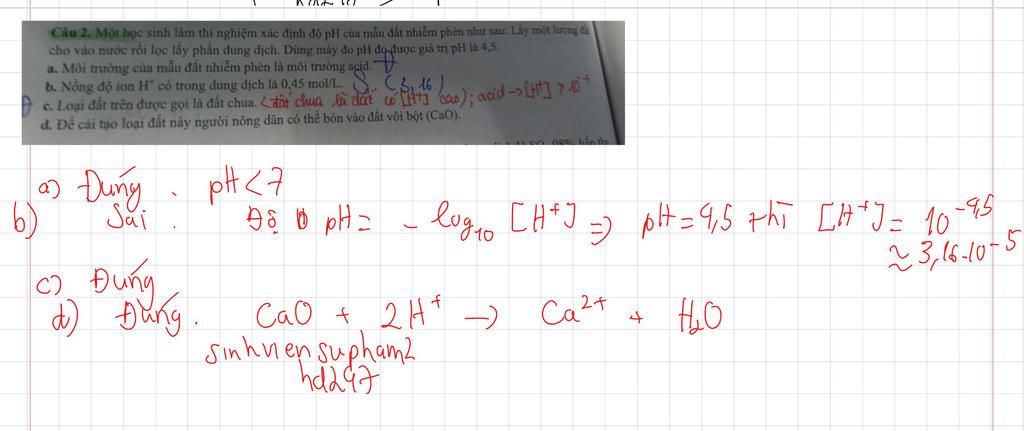 Câu 2. Một học sinh làm thí nghiệm xác định pH của mẫu đất nhiễm phèn như sau: Lấy một lượng đất
cho vào nước rồi lọc lấy phần dung dịch. Dùng máy đo pH đo được giá trị pH là 4,5.
a. Môi trường của mẫu đất nhiễm phèn là môi trường acid. Đ
b. Nồng độ ion H⁺ có trong dung dịch là 0,45 mol/L. S (3,16)
Đ c. Loại đất trên được gọi là đất chua. (đất chua là đất có [H+] cao); acid → [H+] > 10⁻⁷
d. Để cải tạo loại đất này người nông dân có thể bón vào đất vôi bột (CaO).
98% hấn thụ
a) Đúng. pH < 7
b) Sai. Độ pH = - log₁₀ [H⁺] => pH = 4,5 thì [H⁺] = 10⁻⁴,⁵
≈ 3,16.10⁻⁵
c) Đúng
d) Đúng. CaO + 2H⁺ → Ca²⁺ + H₂O
sinhviensupham2
hd247